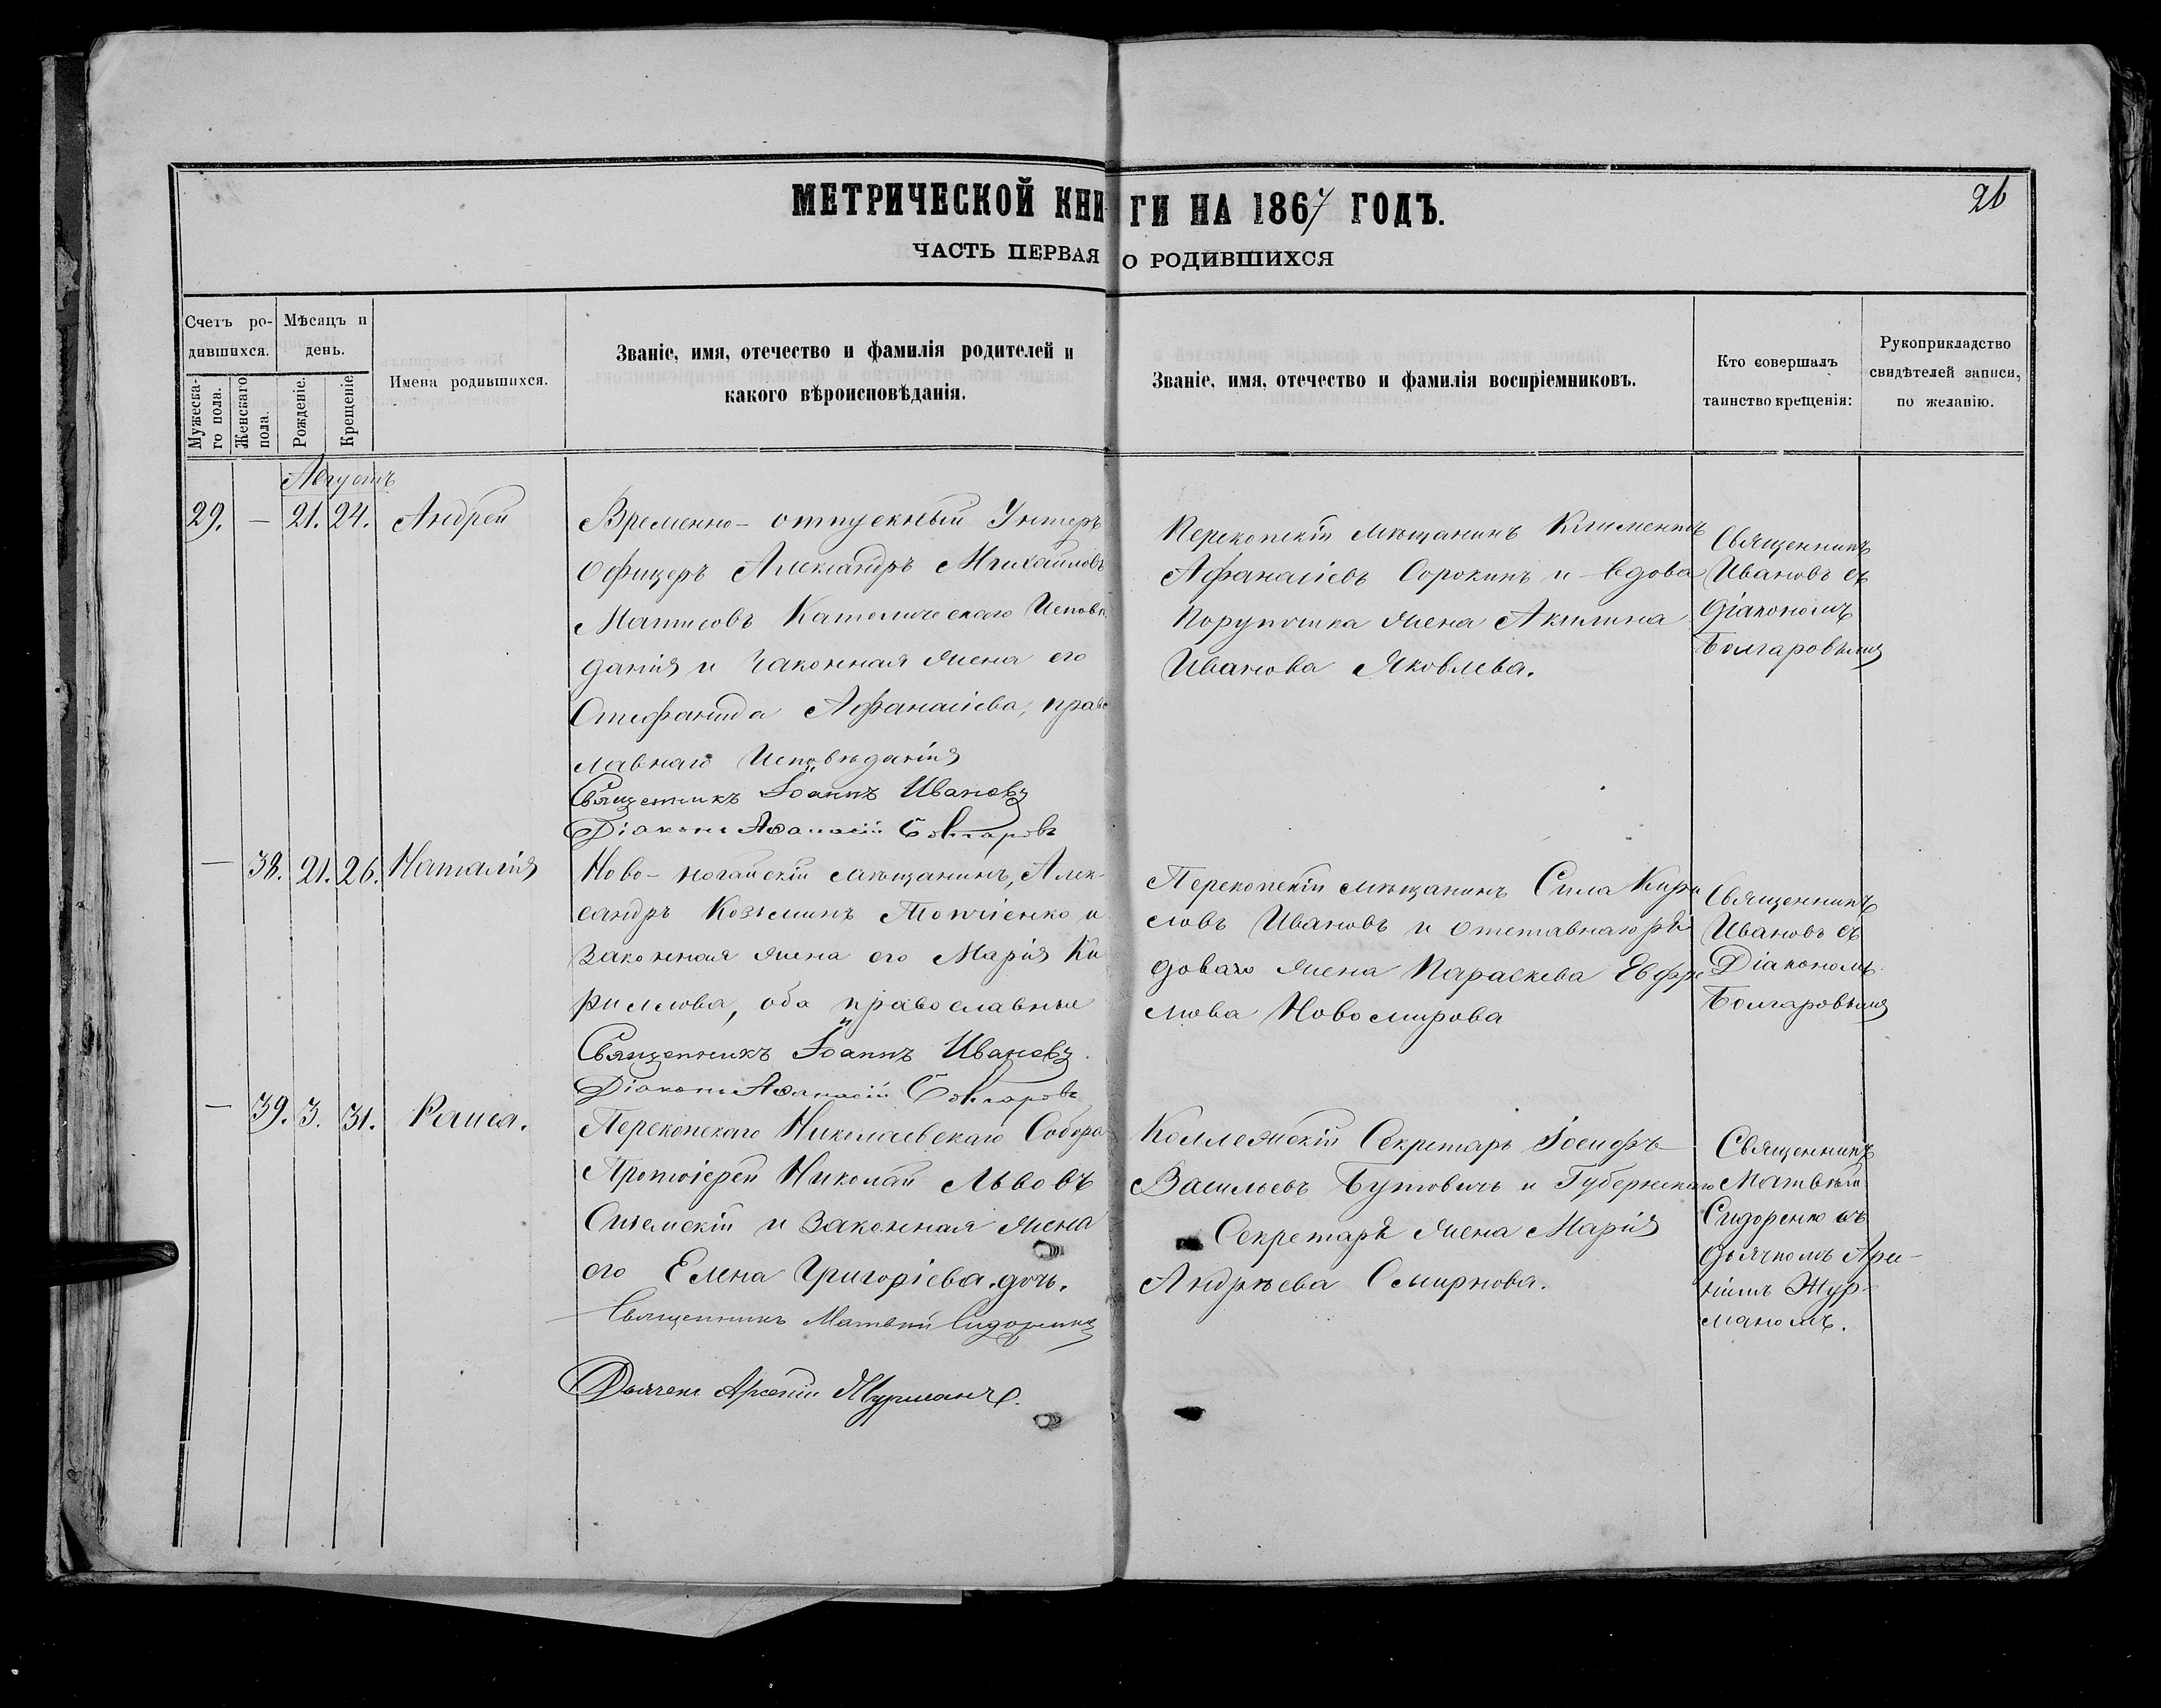 МЕТРИЧЕСКОЙ КНИГИ НА 1867 ГОДЪ.
26
ЧАСТЬ ПЕРВАЯ О РОДИВШИХСЯ
Счетъ ро-
дившихся.
Мѣсяцъ и
день.
Мужеска-
го пола.
Женскаго
пола.
Рожденіе.
Крещеніе
Имена родившихся.
Званіе, имя, отечество и фамилія родителей и
какого вѣроисповѣданія.
Званіе, имя, отечество и фамилія воспріемниковъ.
Кто совершалъ
таинство крещенія:
Рукоприкладство
свидѣтелей записи,
по желанію.
Августъ
29. — 21. 24. Андрей
Временно-отпускный Унтеръ
Офицеръ Александръ Михайловъ
Католическаго Исповѣ
данія и законная жена его
Стефанида Афанасіева, право
славнаго Исповѣданія
Священникъ Іоаннъ Ивановъ
Діаконъ Аѳанасій Болгаровъ
Перекопскій мѣщанинъ Климентъ
Афанасіевъ Сорокинъ и вдова
Поручика жена Акилина
Иванова Яковлева.
Священникъ
Ивановъ съ
Діакономъ
Болгаровымъ
— 38. 21. 26. Наталія
Ново-ногайскій мѣщанинъ, Алек-
сандръ Козьминъ и
законная жена его Марія Ки
риллова, оба православные
Священникъ Іоаннъ Ивановъ.
Діаконъ Аѳанасій Болгаровъ
Перекопскій мѣщанинъ Сила Кири
ловъ Ивановъ и отставнаго ря
доваго жена Параскева Евфре
мова Новомирова
Священникъ
Ивановъ съ
Діакономъ
Болгаровымъ
— 39. 3. 31. Раиса.
Перекопскаго Николаевскаго Собора
Протоіерей Николай Львовъ
и законная жена
его Елена Григоріева дочь.
Священникъ Матвѣй Сидоренко
Дьячекъ Арсеній Журманъ.
Коллежскій Секретарь Іосифъ
Васильевъ Бутовичъ и Губернскаго
Секретаря жена Марія
Андрѣева Смирнова.
Священникъ
Матвѣй
Сидоренко съ
дьячкомъ Арсе-
ніемъ Жур-
маномъ.